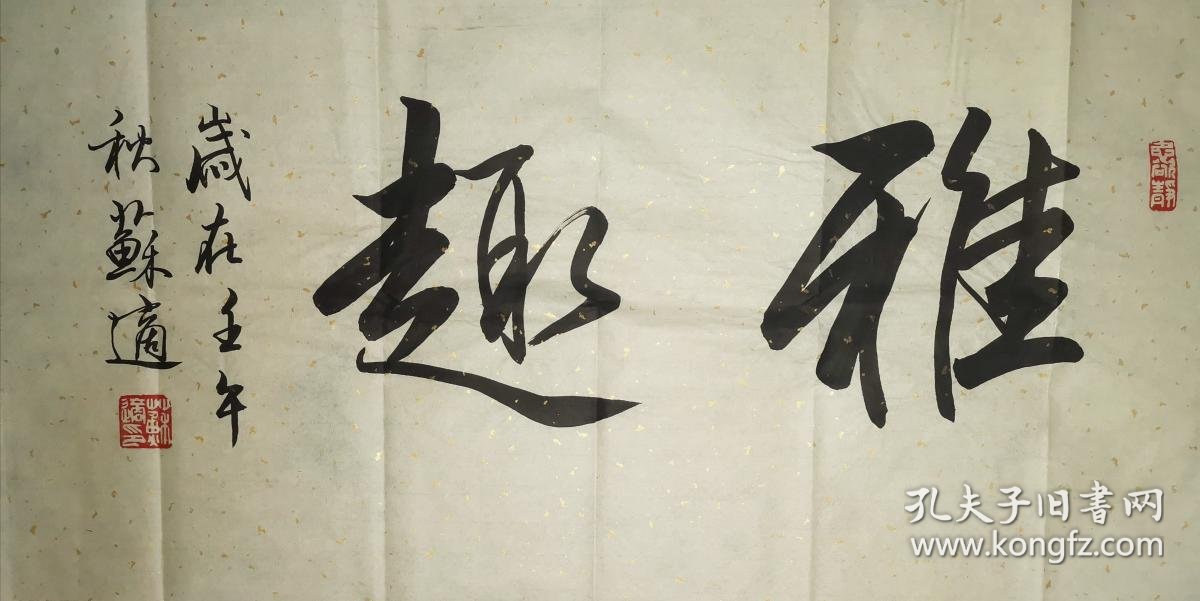 雅趣
歲在壬午
秋蘇適
蘇適之印
孔夫子旧书网
www.kongfz.com